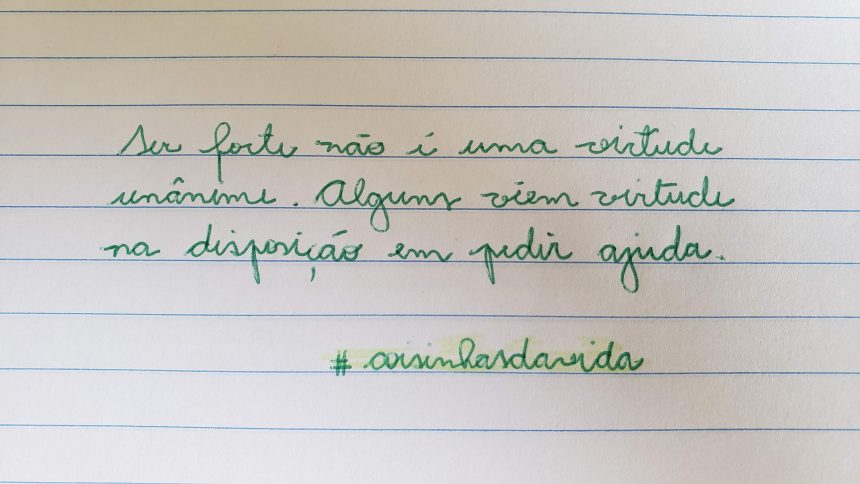 Ser forte não é uma virtude
unânime. Alguns vêem virtude
na disposição em pedir ajuda.
# coisinhasdavida